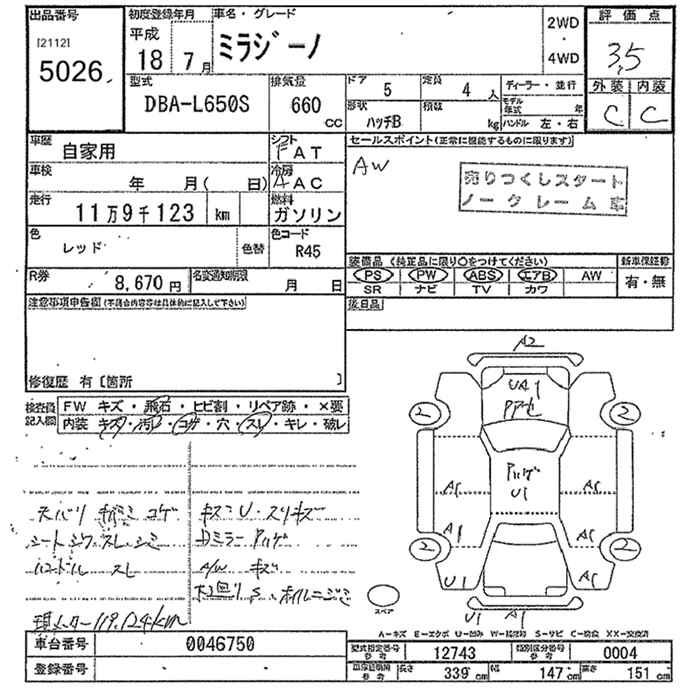 出品番号 初度登録年月 車名・グレード 2WD ・ 4WD 評価点
[2112] 5026 平成 18年 7月 ミラジーノ 3.5
型式 排気量 ドア 5 定員 4人 ディーラー・並行 外装 内装
DBA-L650S 660cc 形状 ハッチB 積数 kg モデル年式 年 ハンドル 左・右 C C
車歴 自家用 シフト FAT セールスポイント(正常に機能するものに限ります)
車検 年 月( 日) 冷房 AAC AW
売りつくしスタート
ノークレーム車
走行 11万9千123 km 燃料 ガソリン
色 レッド 色替 色コード R45
装備品 (純正品に限り○をつけてください) 新車保証書
R券 8,670円 名変通知期限 月 日 PS PW ABS エアB AW 有・無
SR ナビ TV カワ
注意事項申告欄(不具合内容等は具体的に記入して下さい) 後日品
修復歴 有〔箇所 〕
検査員記入欄 FW キズ・飛石・ヒビ割・リペア跡・×要
内装 キズ・汚れ・コゲ・穴・スレ・キレ・破レ
天バリ キバミ コゲ
シートシワ・スレ・シミ
ハンドル スレ
キズミU・スリキズ
Dミラー Pハゲ
A/W キズ
下回りS・オイルニジミ
現メーター119,124km
A2
UA1
2 2
Pハゲ
U1
A1 A1
A1 A1
2 2
U1 A1
スペア
U1 A1
A-キズ E-エクボ U-凹み W-補修跡 S-サビ C-腐食 XX-交換済
車台番号 0046750 型式指定番号 参考 12743 類別区分番号 参考 0004
登録番号 参考 長さ 339cm 幅 147cm 高さ 151cm